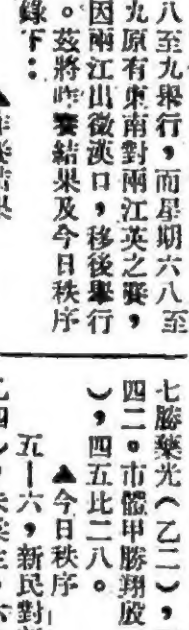 八至九舉行，而星期六八至
九原有東南對兩江英之賽，
因兩江出徵漢口，移後舉行
。茲將昨賽結果及今日秩序
錄下：
七勝樂光（乙二），
四二。市體甲勝翔殷
），四五比二八。
▲今日秩序
五－六，新民對